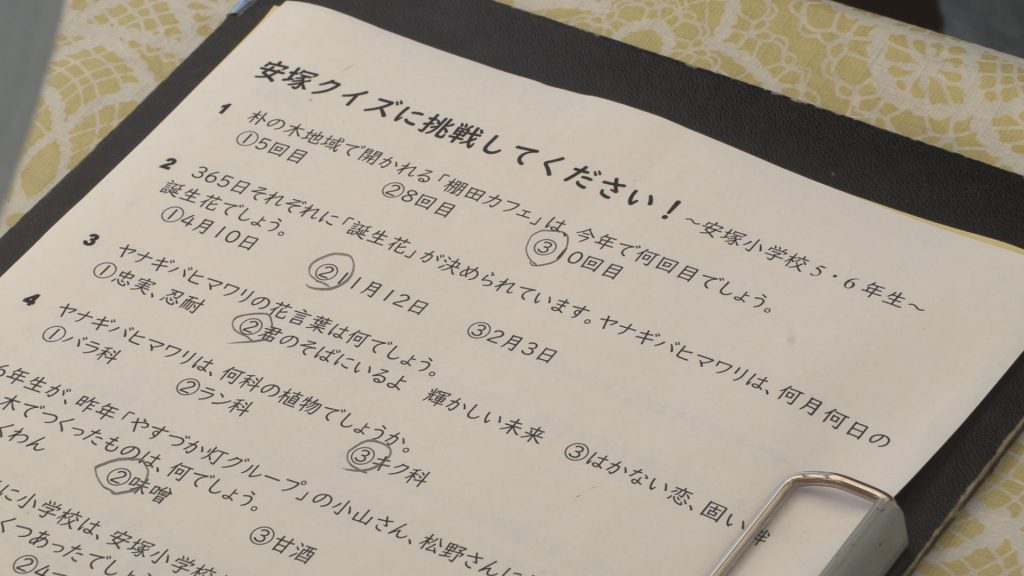 安塚クイズに挑戦してください！ ～安塚小学校５・６年生～
1 朴の木地域で開かれる「棚田カフェ」は、今年で何回目でしょう。
①5回目 ②8回目 ③10回目
2 365日それぞれに「誕生花」が決められています。ヤナギバヒマワリは、何月何日の
誕生花でしょう。
①4月10日 ②11月12日 ③2月3日
3 ヤナギバヒマワリの花言葉は何でしょう。
①忠実、忍耐 ②君のそばにいるよ 輝かしい未来 ③はかない恋、固い
4 ヤナギバヒマワリは、何科の植物でしょうか。
①バラ科 ②ラン科 ③キク科
6年生が、昨年「やすづか灯グループ」の小山さん、松野さんに
木でつくったものは、何でしょう。
くわん ②味噌 ③甘酒
に小学校は、安塚小学校
くつあったでしょ
②4